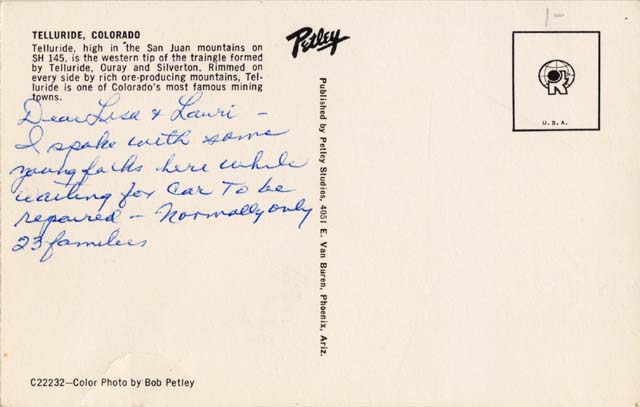 1-
TELLURIDE, COLORADO
Telluride, high in the San Juan mountains on
SH 145, is the western tip of the traingle formed
by Telluride, Ouray and Silverton. Rimmed on
every side by rich ore-producing mountains, Tel-
luride is one of Colorado's most famous mining
towns.
Petley
U.S.A.
Dear Lisa & Lauri -
I spoke with some
young folks here while
waiting for Car To be
repaired - Normally only
23 families
Published by Petley Studios, 4051 E. Van Buren, Phoenix, Ariz.
C22232—Color Photo by Bob Petley